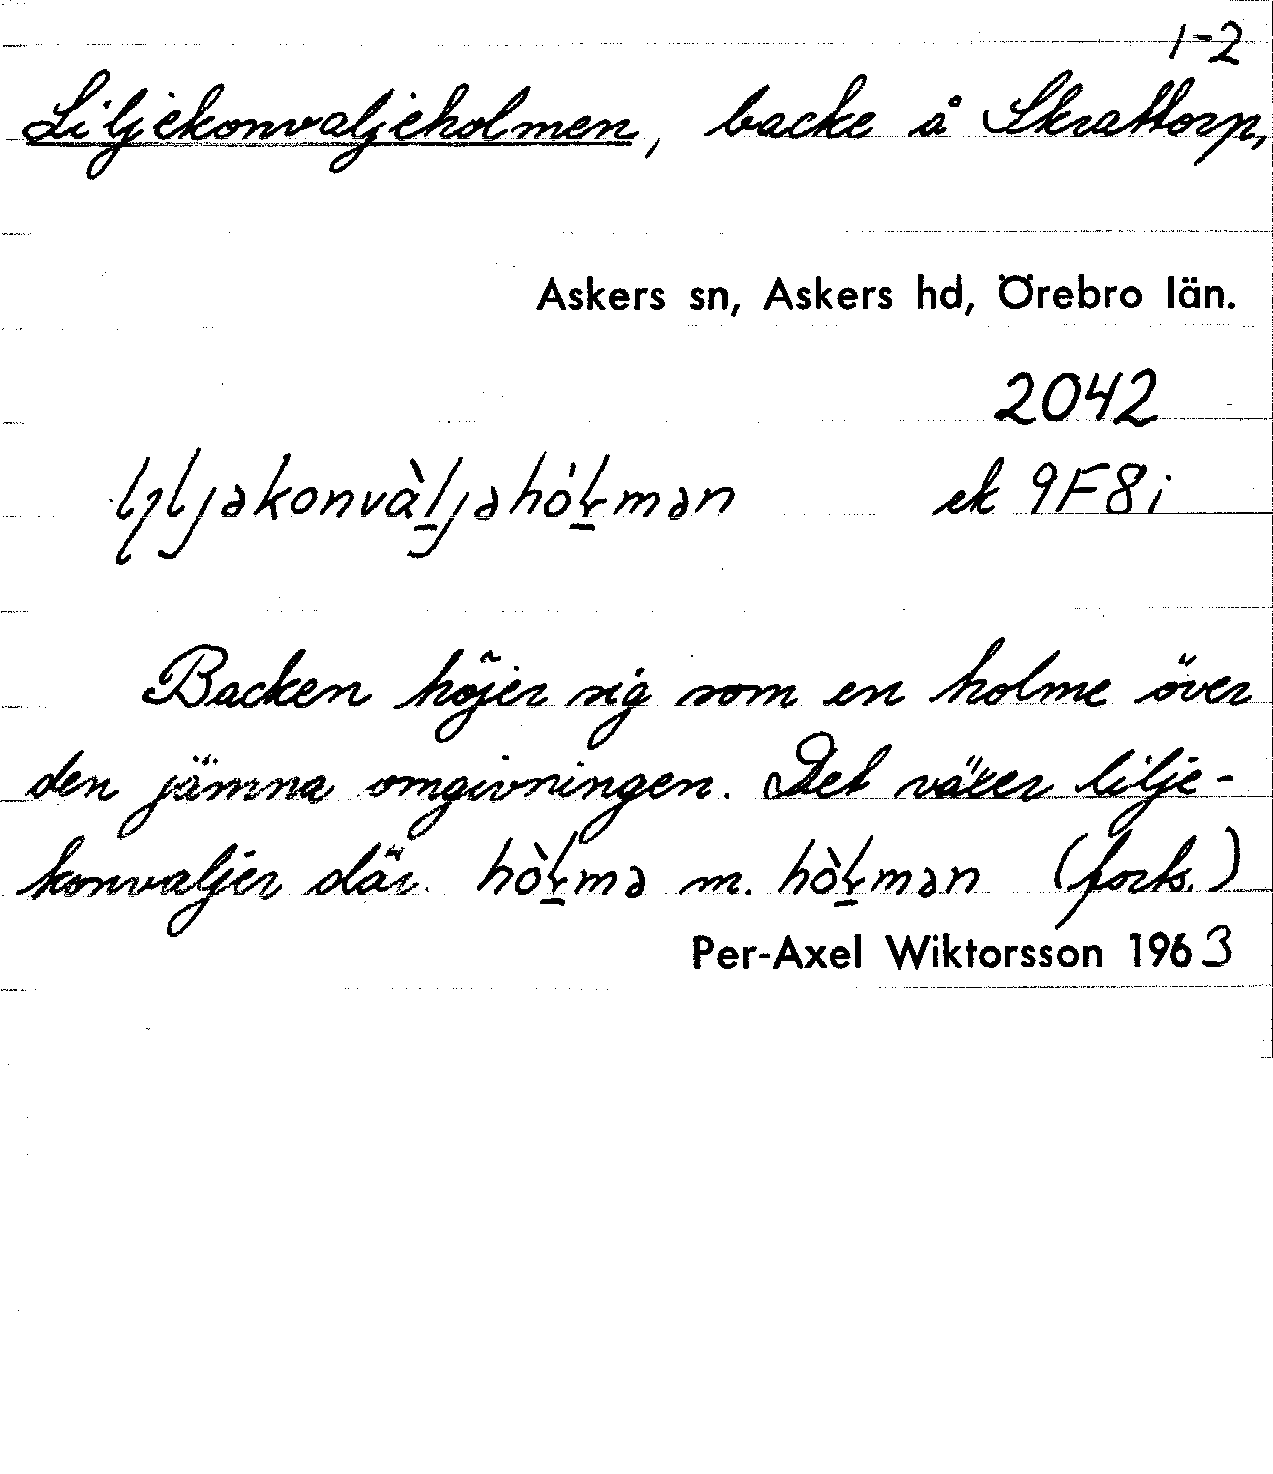 1-2
Liljekonvaljeholmen, backe å Skrattorp,
Askers sn, Askers hd, Örebro län.
2042
lɩljəkonvàl̠jəhól̠mən ek 9F8i
Backen höjer sig som en holme över
den jämna omgivningen. Det växer lilje-
konvaljer där. hòl̠mə m. hòl̠mən (forts.)
Per-Axel Wiktorsson 1963